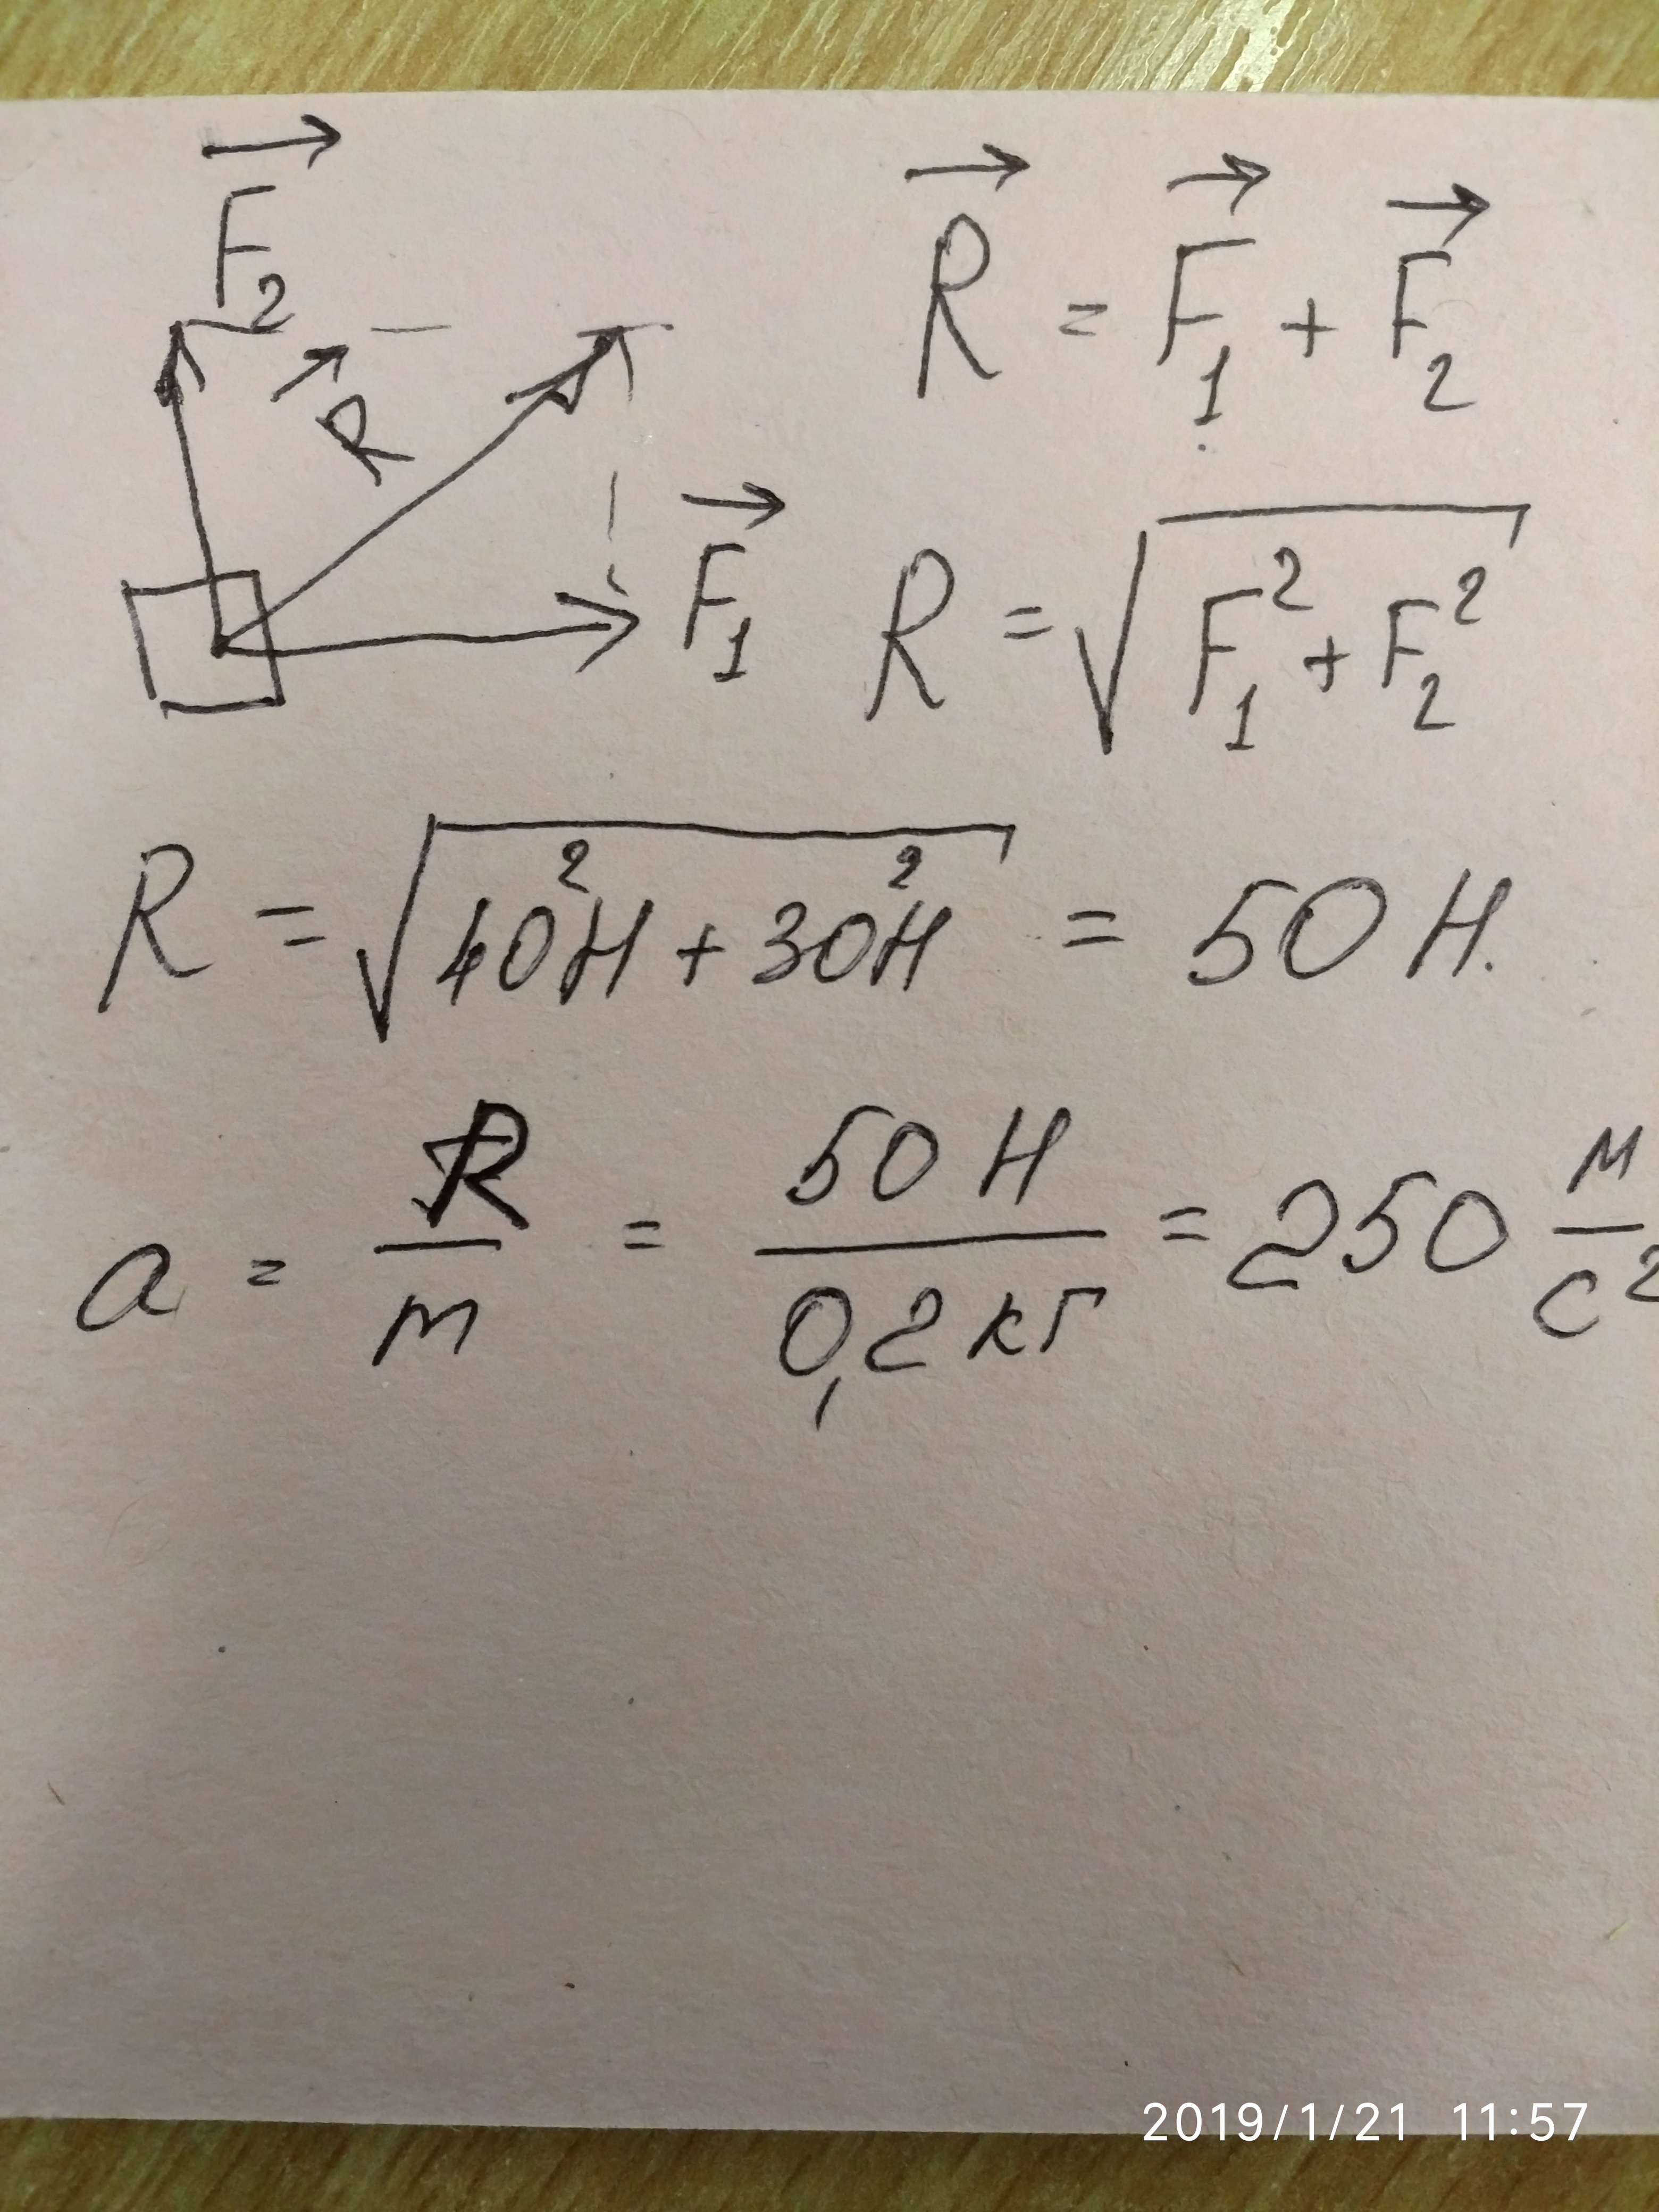 F₂→
R→ = F₁→ + F₂→
R→
F₁→
R = √(F₁² + F₂²)
R = √(40²Н + 30²Н) = 50 Н.
a = R/m = 50 Н/0,2 кг = 250 м/с²
2019/1/21 11:57